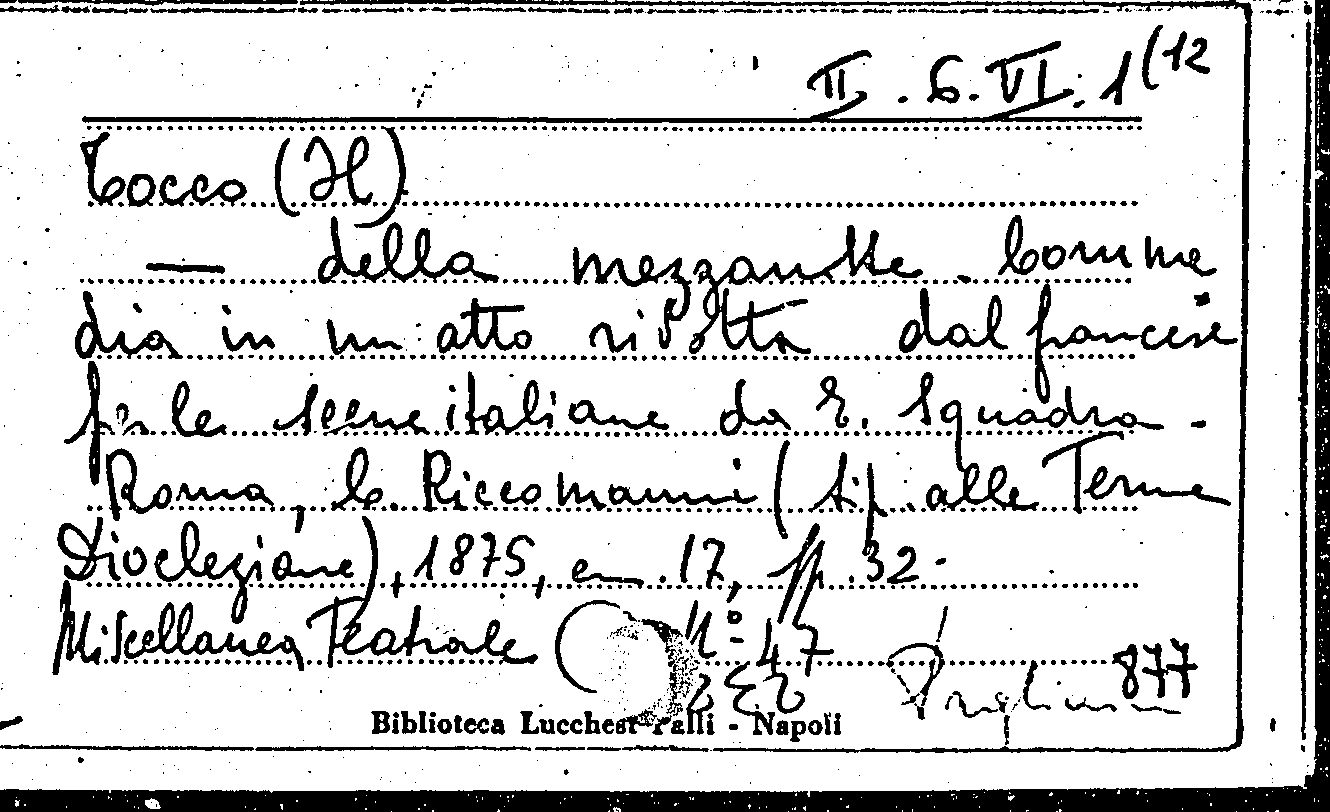 II. 6. VI. 1(12
Tocco (Il)
— della mezzanotte. Comme
dia in un atto ridotta dal francese
per le scene italiane da E. Squadra.
Roma, C. Riccomanni (tip. alle Terme
Diocleziane), 1875, cm. 17, pp. 32.
Miscellanea Teatrale N° 47
877
Biblioteca Lucchesi-Palli - Napoli